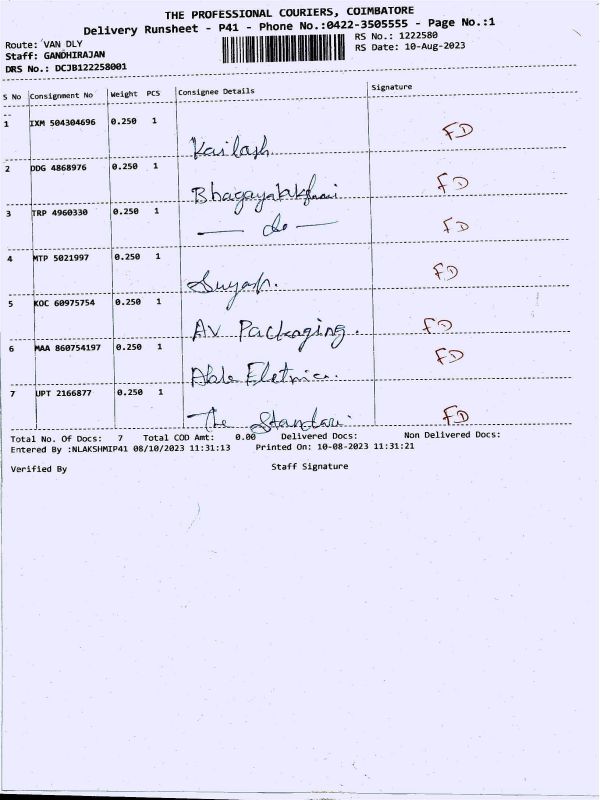 THE PROFESSIONAL COURIERS, COIMBATORE
Delivery Runsheet - P41 - Phone No.:0422-3505555 - Page No.:1
Route: VAN DLY
RS No.: 1222580
Staff: GANDHIRAJAN
RS Date: 10-Aug-2023
DRS No.: DCJB122258001
S No Consignment No Weight PCS Consignee Details Signature
1 IXM 504304696 0.250 1 Kailash FD
2 DDG 4868976 0.250 1 FD
3 TRP 4960330 0.250 1 — do — FD
4 MTP 5021997 0.250 1 FD
5 KOC 60975754 0.250 1 AV Packaging. FD
6 MAA 860754197 0.250 1 FD
7 UPT 2166877 0.250 1 The FD
Total No. Of Docs: 7 Total COD Amt: 0.00 Delivered Docs: Non Delivered Docs:
Entered By :NLAKSHMIP41 08/10/2023 11:31:13 Printed On: 10-08-2023 11:31:21
Verified By Staff Signature